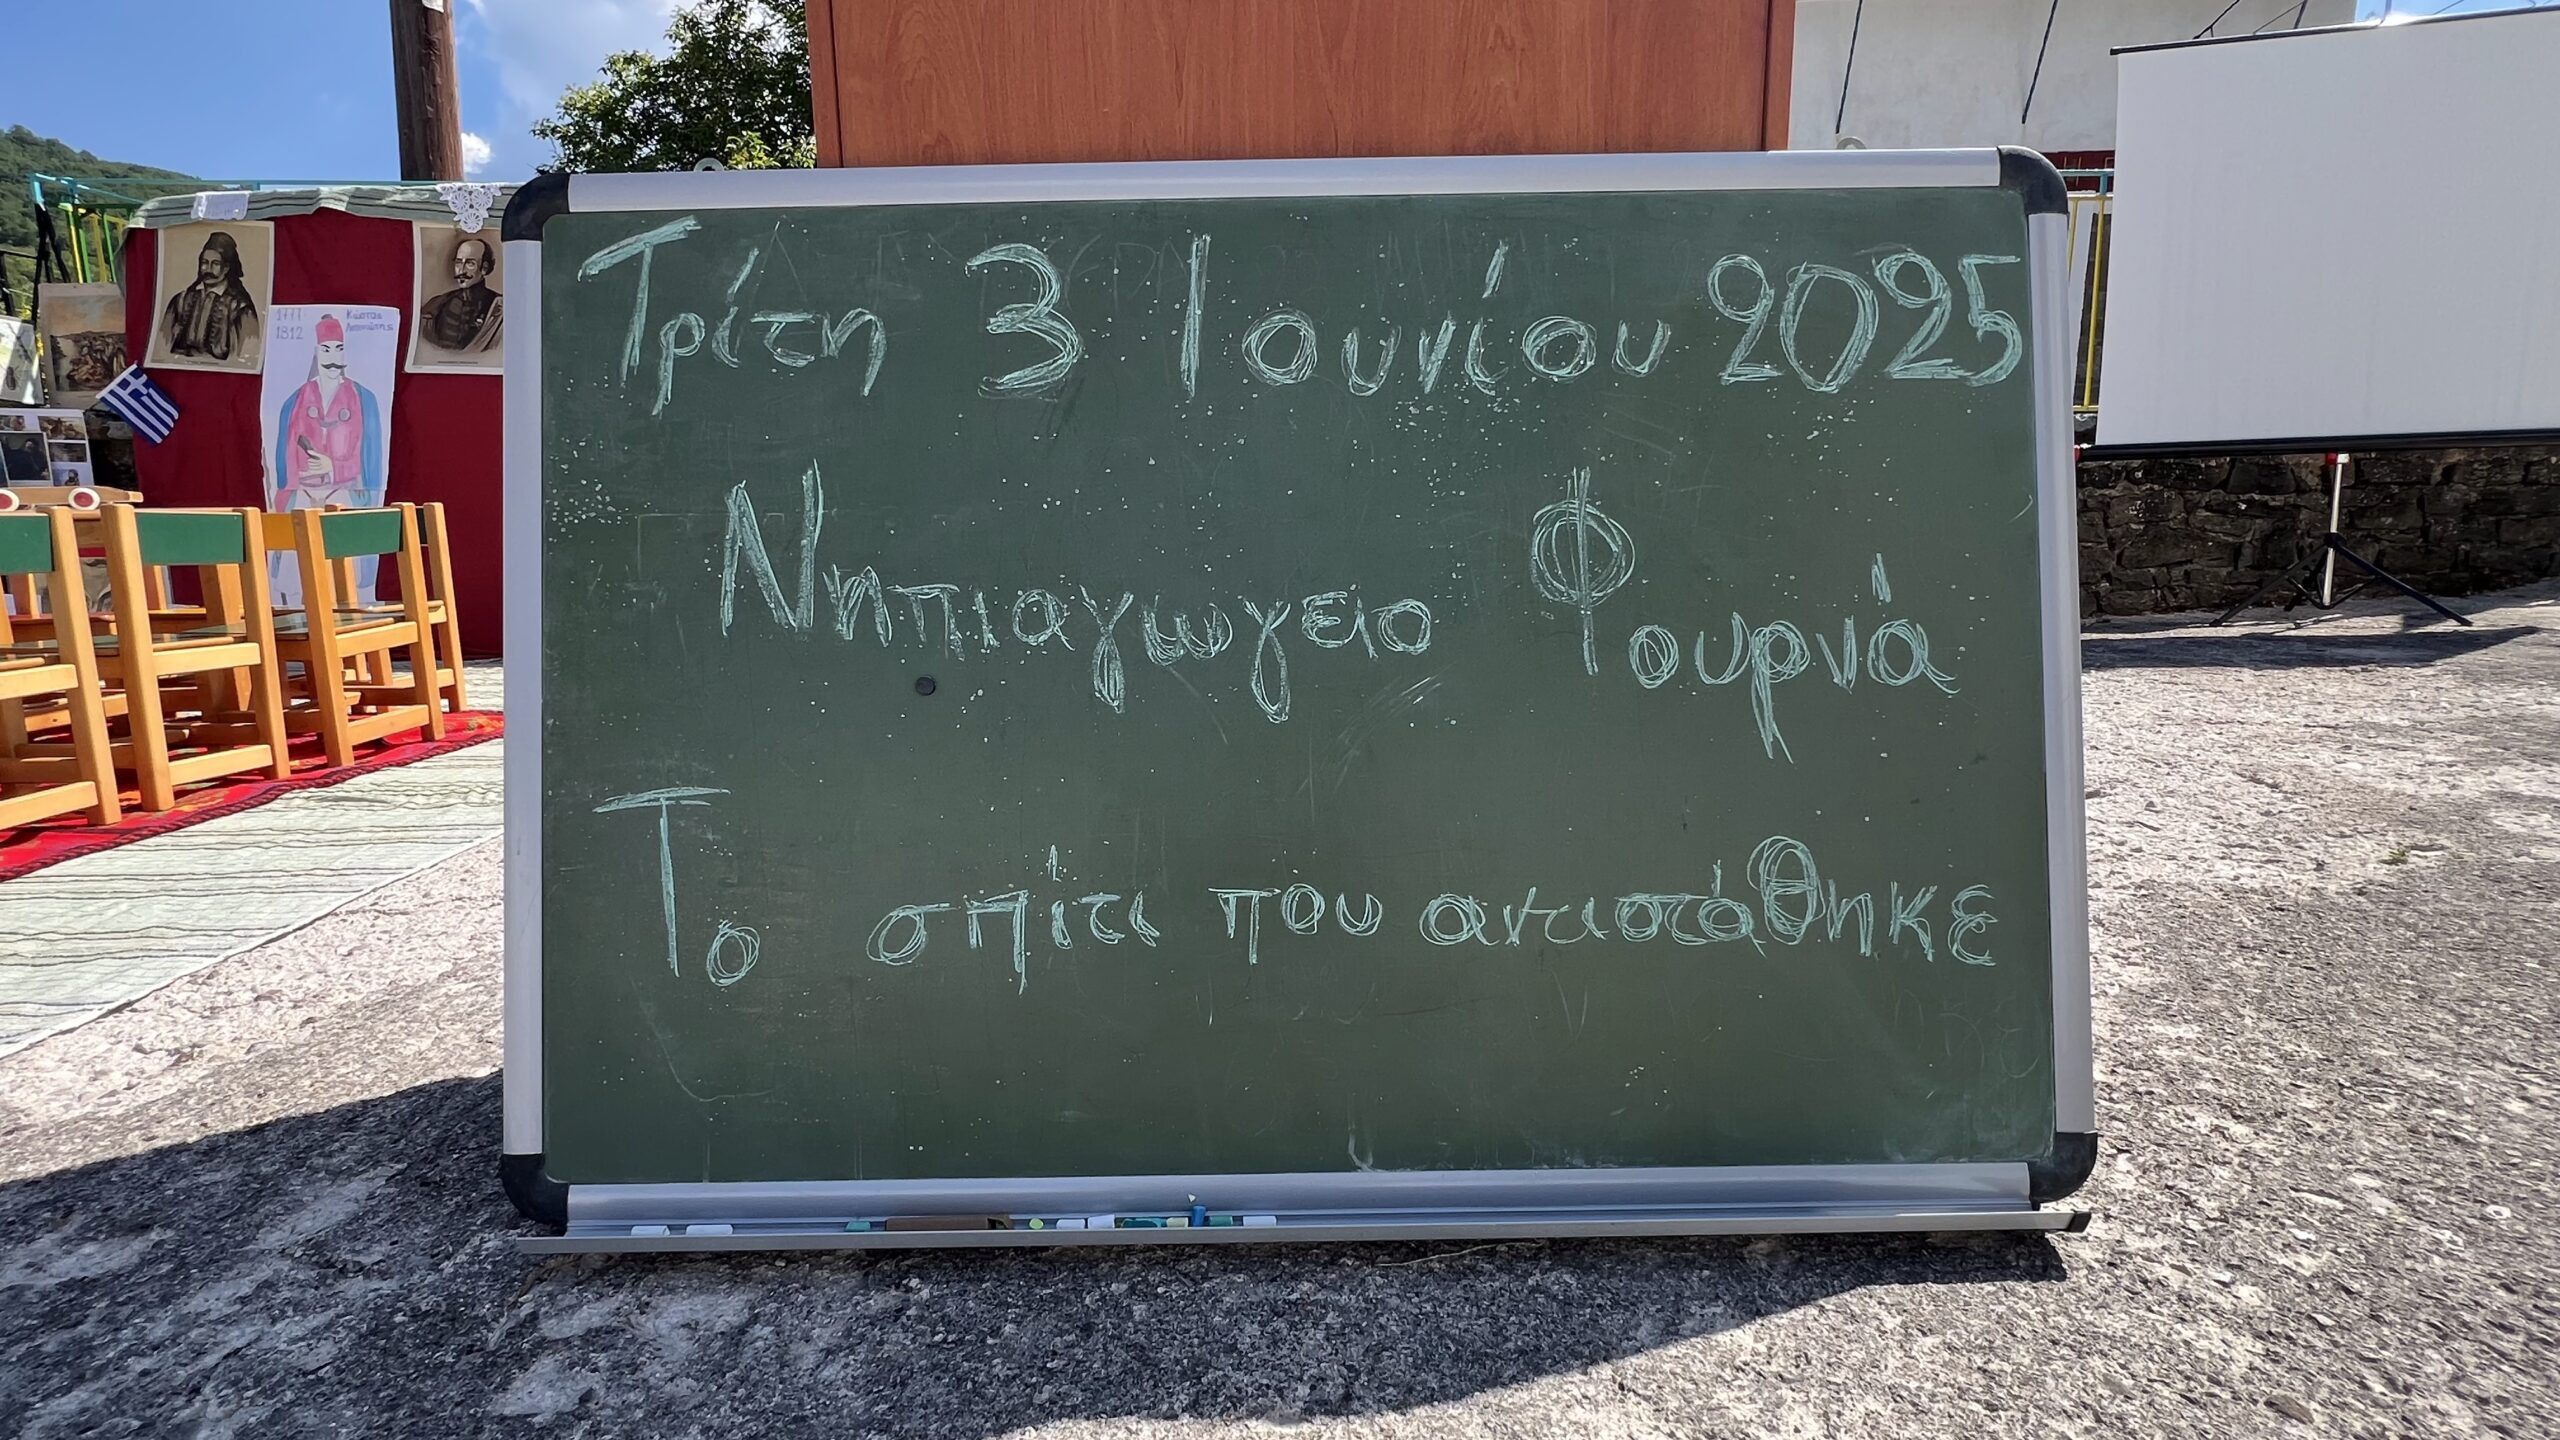 Τρίτη 3 Ιουνίου 2025
Νηπιαγωγειο Φουρνά
Το σπίτι που αντιστάθηκε
1777
1812
Κώστας